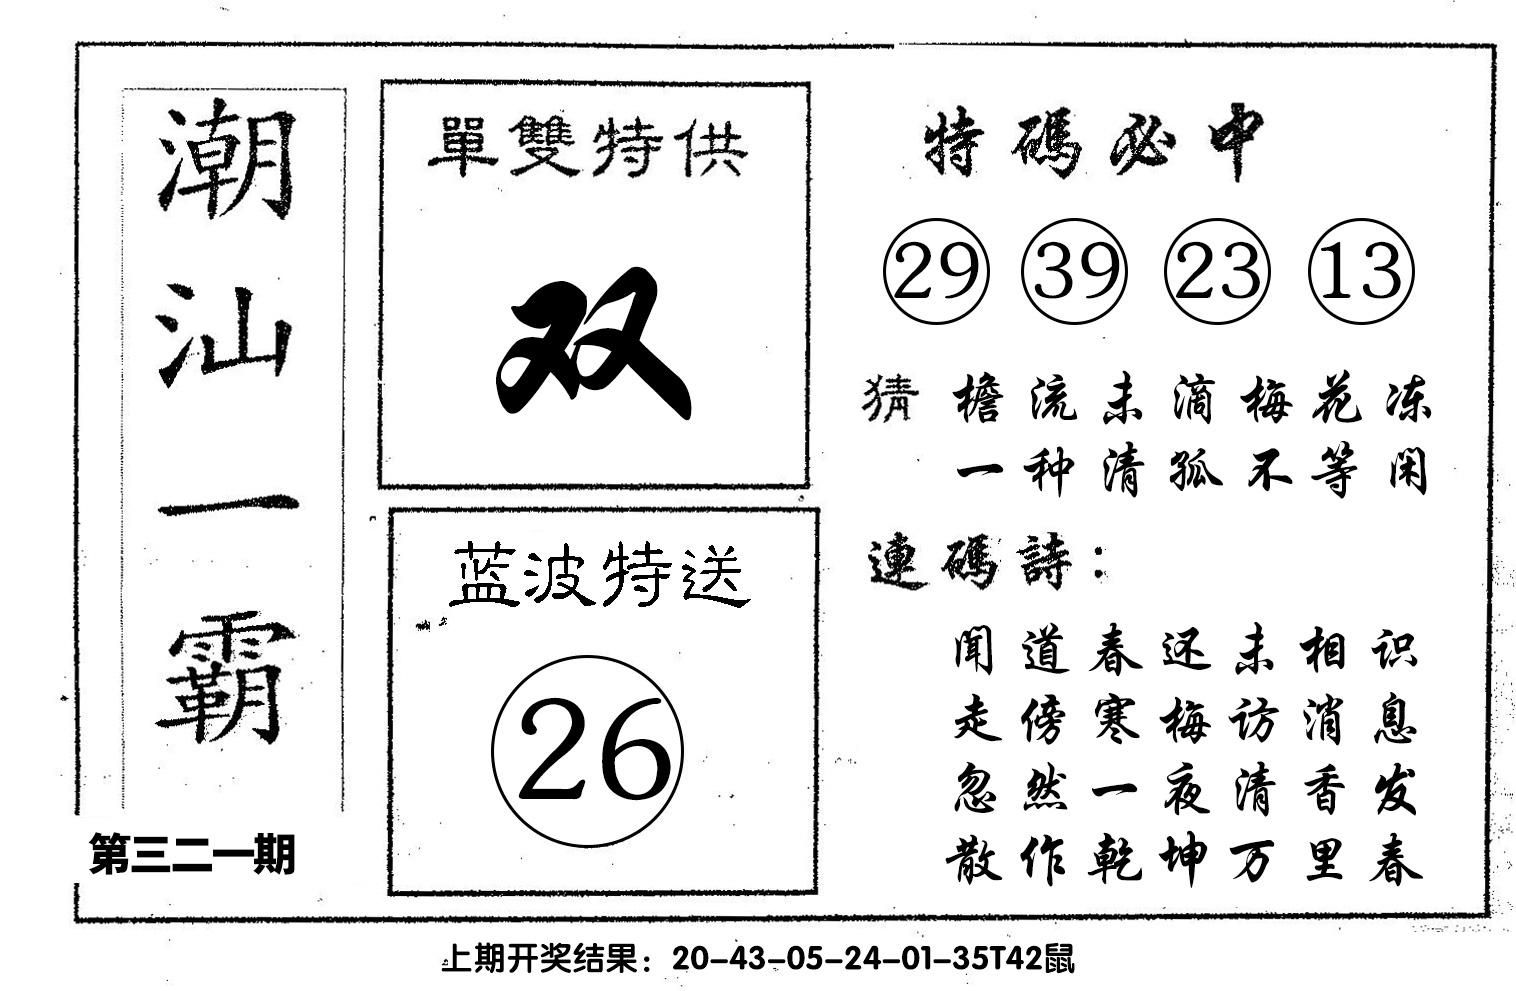 潮汕一霸
第三二一期
單雙特供
双
蓝波特送
26
特碼必中
29 39 23 13
猜 檐流未滴梅花冻
一种清孤不等闲
連碼詩：
聞道春还未相识
走傍寒梅访消息
忽然一夜清香发
散作乾坤万里春
上期开奖结果：20-43-05-24-01-35T42鼠